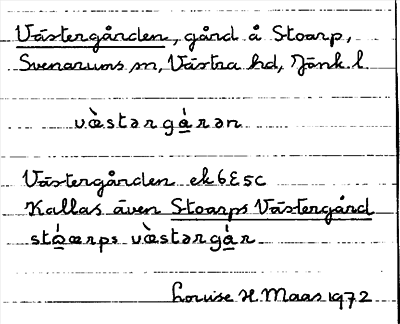 Västergården, gård å Stoarp,
Svenarums sn, Västra hd, Jönk. l.
væ̀stərgá̱rən
Västergården ek 6E5c
Kallas även Stoarps Västergård
stá̱ærps væ̀stərgá̱r
Louise H. Maas 1972